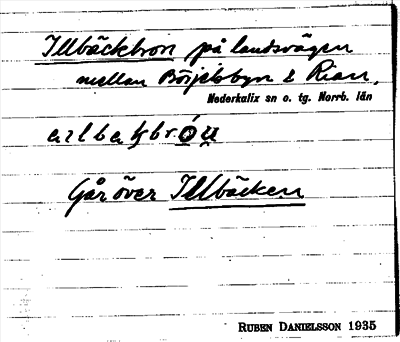 Illbäckbron på landsvägen
mellan Börjelsbyn & Rian,
Nederkalix sn o. tg. Norrb. län
Går över Illbäcken
RUBEN DANIELSSON 1935